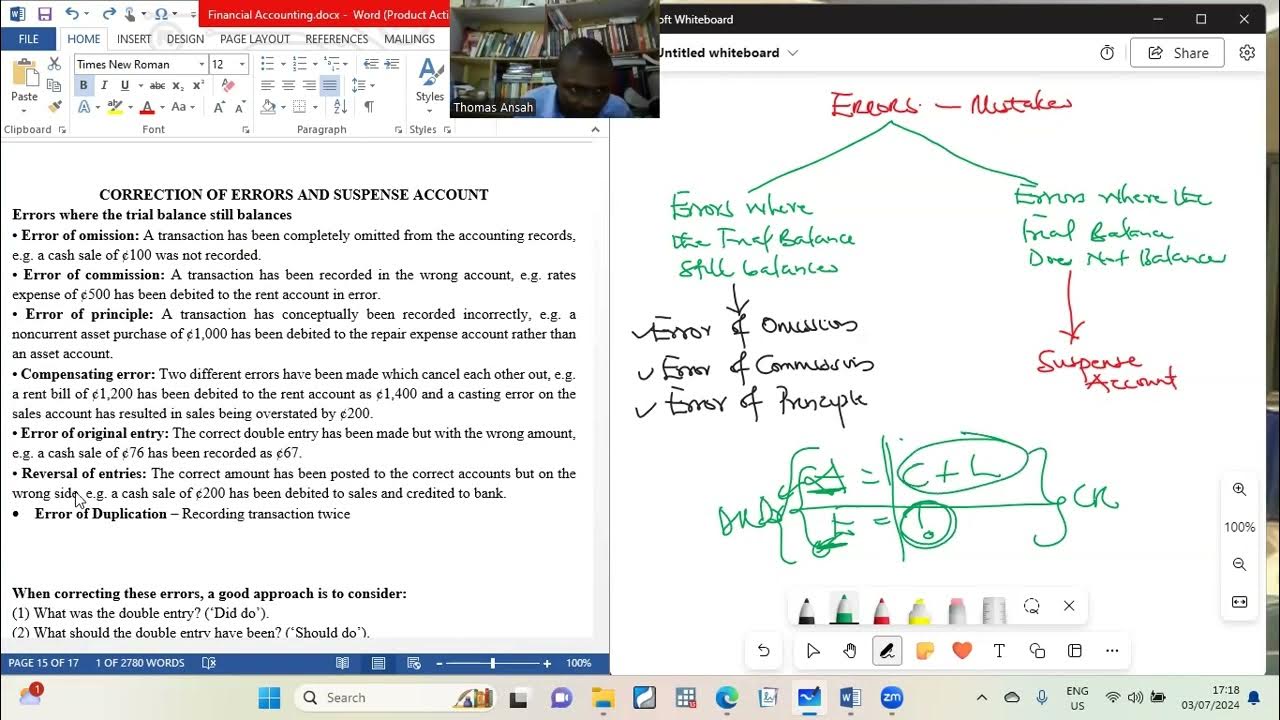 Financial Accounting.docx - Word (Product Acti
FILE
HOME
INSERT
DESIGN
PAGE LAYOUT
REFERENCES
MAILINGS
Paste
Times New Roman
12
B I U abc x₂ x²
A aby A Aa
Styles
Clipboard
Font
Paragraph
Styles
Thomas Ansah
CORRECTION OF ERRORS AND SUSPENSE ACCOUNT
Errors where the trial balance still balances
• Error of omission: A transaction has been completely omitted from the accounting records,
e.g. a cash sale of ¢100 was not recorded.
• Error of commission: A transaction has been recorded in the wrong account, e.g. rates
expense of ¢500 has been debited to the rent account in error.
• Error of principle: A transaction has conceptually been recorded incorrectly, e.g. a
noncurrent asset purchase of ¢1,000 has been debited to the repair expense account rather than
an asset account.
• Compensating error: Two different errors have been made which cancel each other out, e.g.
a rent bill of ¢1,200 has been debited to the rent account as ¢1,400 and a casting error on the
sales account has resulted in sales being overstated by ¢200.
• Error of original entry: The correct double entry has been made but with the wrong amount,
e.g. a cash sale of ¢76 has been recorded as ¢67.
• Reversal of entries: The correct amount has been posted to the correct accounts but on the
wrong side, e.g. a cash sale of ¢200 has been debited to sales and credited to bank.
• Error of Duplication – Recording transaction twice
When correcting these errors, a good approach is to consider:
(1) What was the double entry? (‘Did do’).
(2) What should the double entry have been? (‘Should do’).
PAGE 15 OF 17
1 OF 2780 WORDS
100%
oft Whiteboard
Untitled whiteboard
Share
Errors - Mistakes
Errors where
the Trial Balance
still balances
Errors where the
Trial Balance
Does Not Balance
Error of Omission
Error of Commission
Error of Principle
Suspense
Account
= C + L
E = I
CR
100%
T
1
Search
zm
ENG
US
17:18
03/07/2024